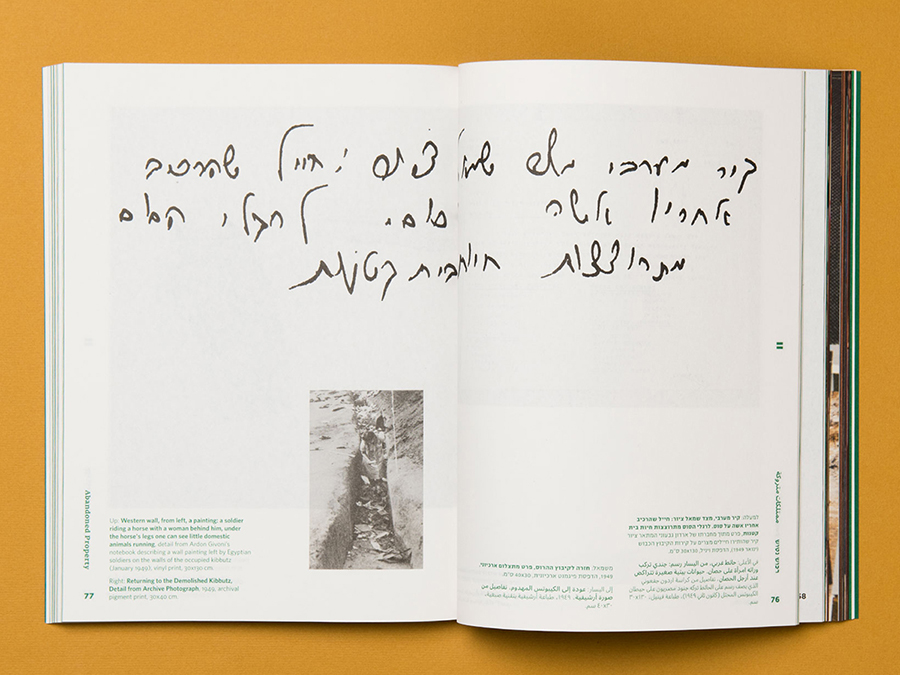 קיר מערבי מצד שמאל ציור: חייל שהרכיב
אחריו אשה סוס. לרגלי הסוס
מתרוצצות חיות בית קטנות
II
ممتلكات متروكة
רכוש נטוש
למעלה: קיר מערבי, מצד שמאל ציור: חייל שהרכיב
אחריו אשה על סוס. לרגלי הסוס מתרוצצות חיות בית
קטנות, פרט מתוך מחברתו של ארדון גבעוני המתאר ציור
קיר שהותירו חיילים מצרים על קירות הקיבוץ הכבוש
(ינואר 1949), הדפסת ויניל, ס״מ.
في الأعلى: حائط غربي، من اليسار رسم: جندي تركب
ورائه امرأة على حصان. حيوانات بيتية صغيرة تتراكض
عند أرجل الحصان، تفاصيل من كراسة اردون جفعوني
الذي يصف رسم على الحائط تركه جنود مصريون على حيطان
الكيبوتس المحتل (كانون ثاني ١٩٤٩)، طباعة فينيل،
سم.
76
משמאל: חזרה לקיבוץ ההרוס, פרט מתצלום ארכיוני,
1949, הדפסת פיגמנט ארכיונית, 40x30 ס״מ.
إلى اليسار: عودة إلى الكيبوتس المهدوم، تفاصيل من
صورة أرشيفية، ١٩٤٩، طباعة أرشيفية بتقنية صبغية،
٣٠×٤٠ سم.
Abandoned Property
Up: Western wall, from left, a painting: a soldier
riding a horse with a woman behind him, under
the horse's legs one can see little domestic
animals running, detail from Ardon Givoni's
notebook describing a wall painting left by Egyptian
soldiers on the walls of the occupied kibbutz
(January 1949), vinyl print, 30x190 cm.
Right: Returning to the Demolished Kibbutz,
Detail from Archive Photograph, 1949, archival
pigment print, 30x40 cm.
77